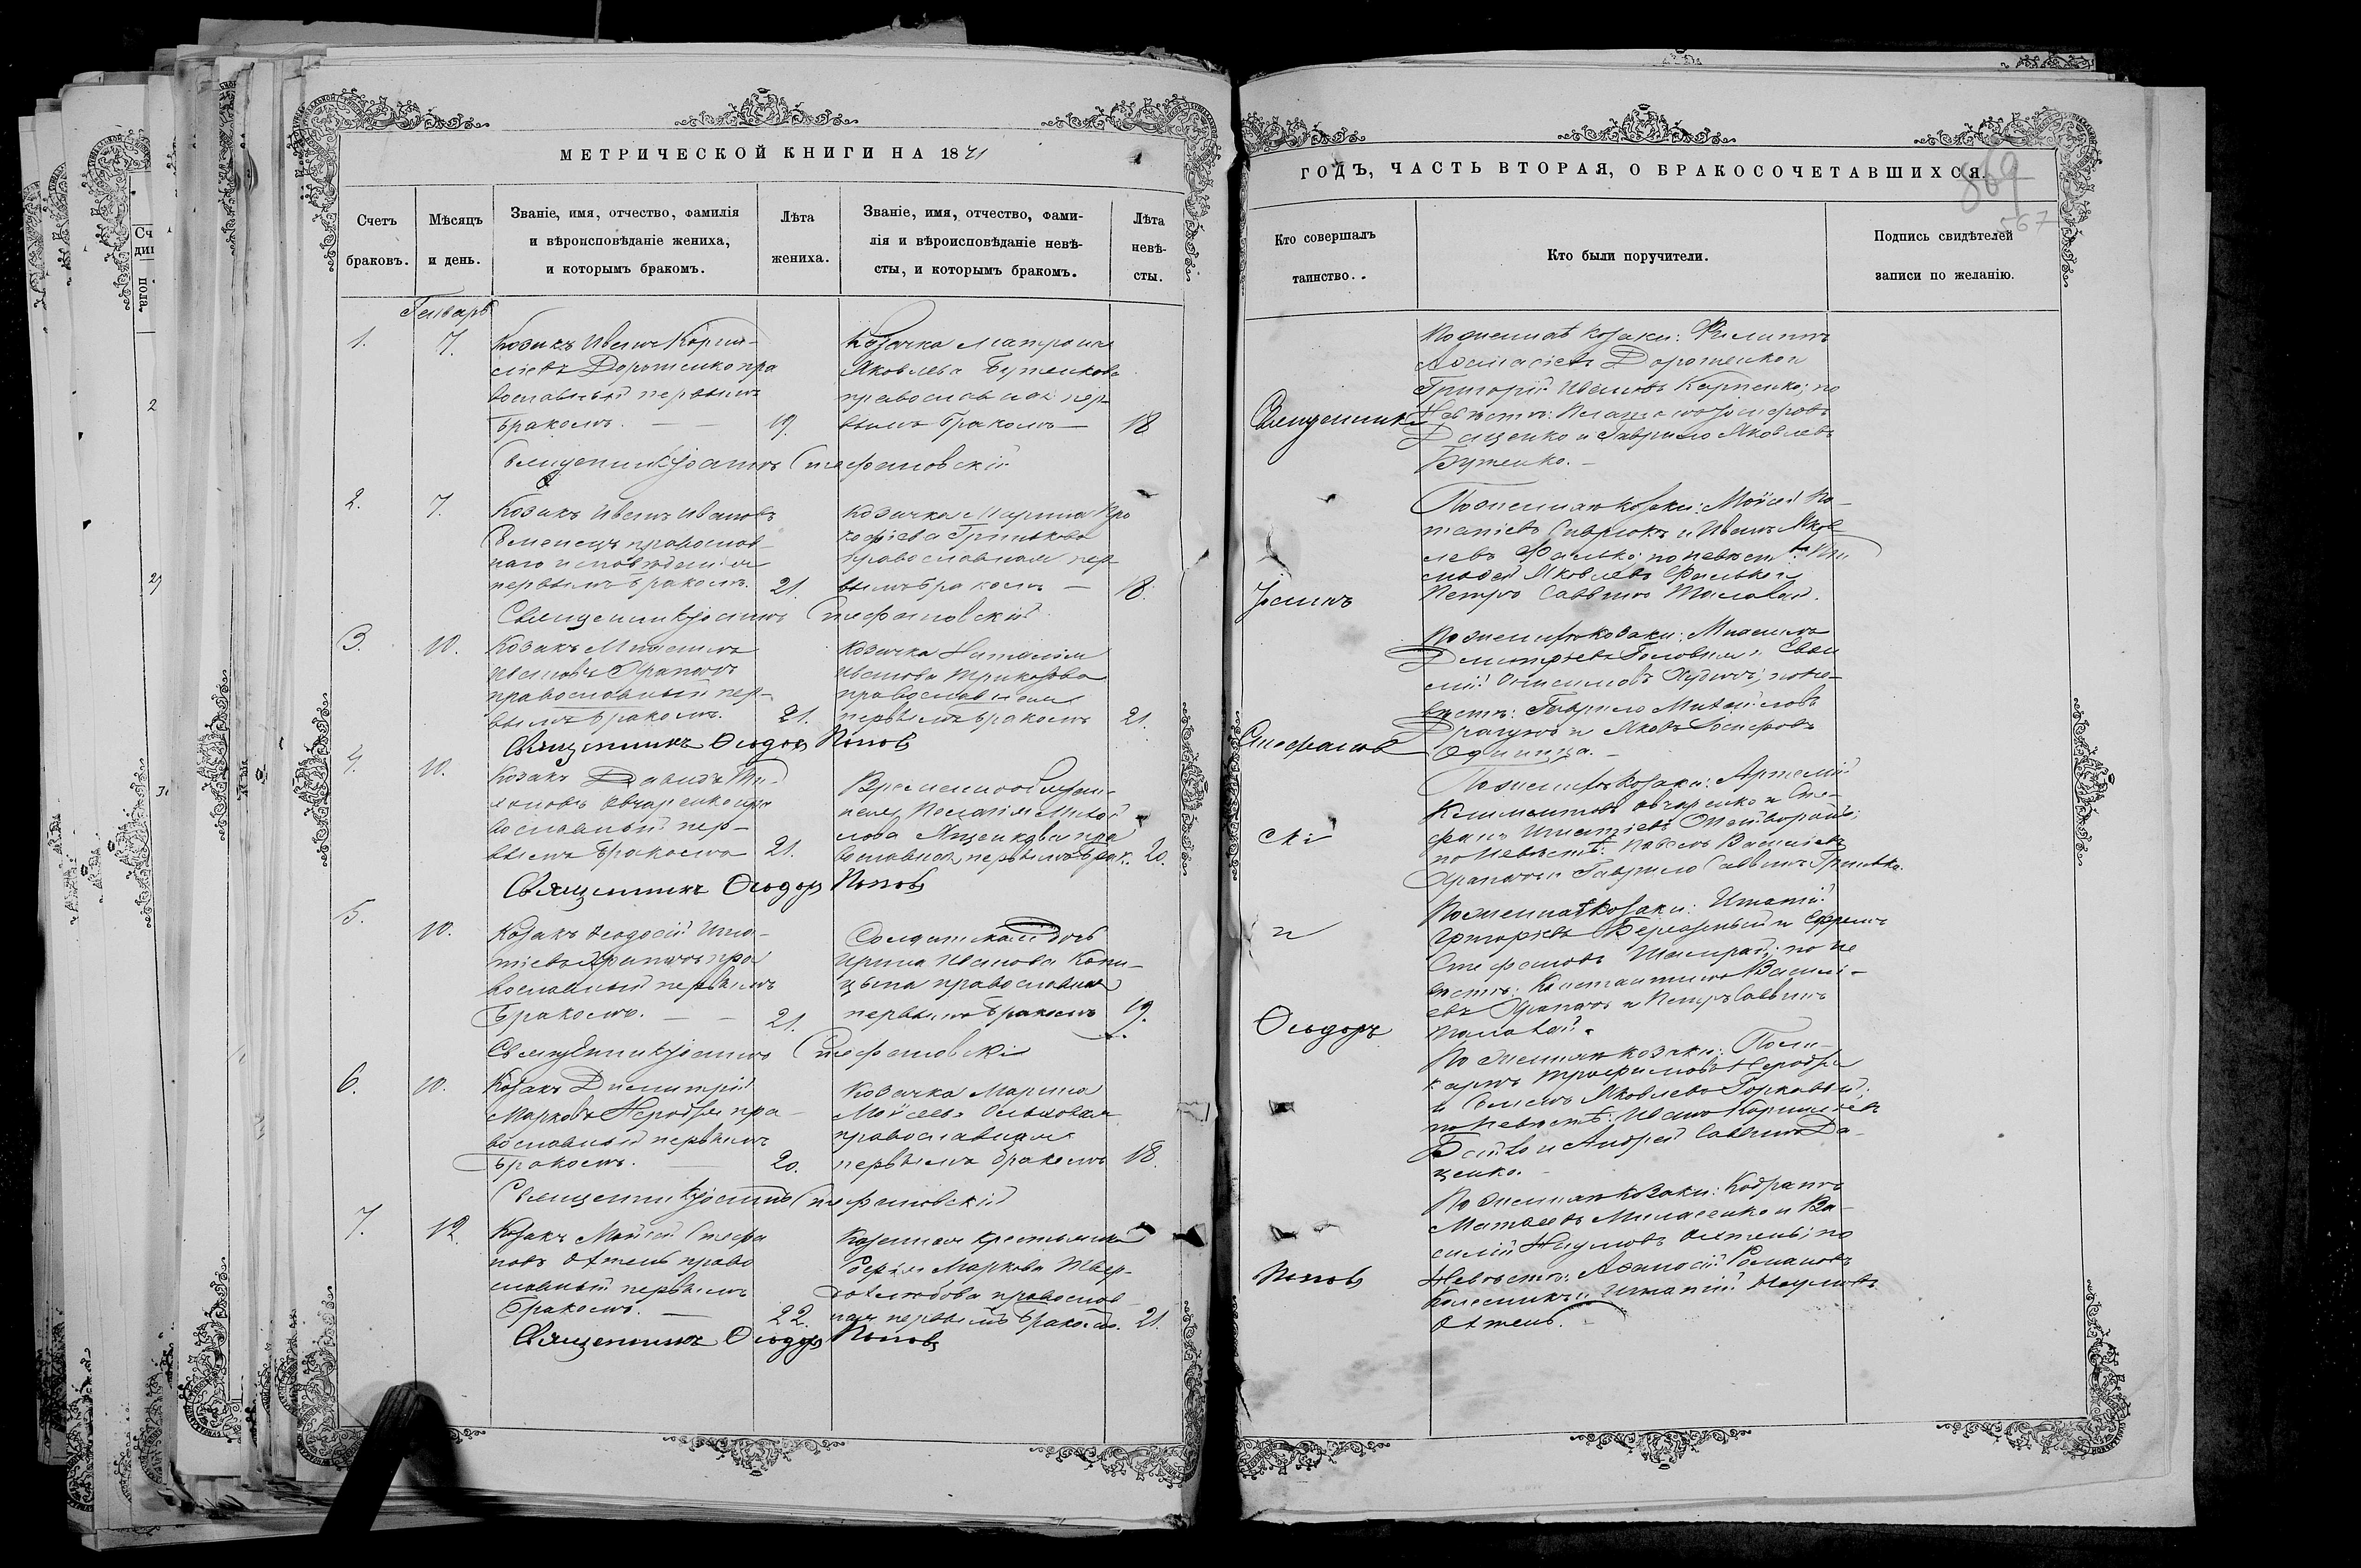 МЕТРИЧЕСКОЙ КНИГИ НА 1871
Счетъ браковъ.
Мѣсяцъ и день.
Званіе, имя, отчество, фамилія
и вѣроисповѣданіе жениха,
и которымъ бракомъ.
Лѣта
жениха.
Званіе, имя, отчество, фами-
лія и вѣроисповѣданіе невѣ-
сты, и которымъ бракомъ.
Лѣта
невѣ-
сты.
Генварь
1.
7.
Козакъ Иванъ Корни-
ліевъ Дорошенко пра
вославный первымъ
бракомъ.
19.
Козачка Матрона
Яковлева Бутенкова
православная пер-
вымъ бракомъ
18
Священникъ Іоаннъ Стефановскій
2.
7.
Козакъ Иванъ Ивановъ
Семенецъ православ-
наго исповѣданія
первымъ бракомъ.
21.
Козачка Марина Про
кофіева Гринькова
православная пер-
вымъ бракомъ
18.
Священникъ Іоаннъ Стефановскій
3.
10.
Козакъ
Ивановъ Храпачъ
православный пер-
вымъ бракомъ.
21.
Козачка Наталія
Иванова
православная
первымъ бракомъ
21.
Священникъ Ѳеодоръ Поповъ
4.
10.
Козакъ Давидъ Ти-
хоновъ Овчаренко пра
вославный пер-
вымъ бракомъ
21.
Пелагія Михай
лова Яценкова пра
вославная первымъ брак.
20.
Священникъ Ѳеодоръ Поповъ
5.
10.
Козакъ Ѳеодосій Игна-
тіевъ Храпачъ пра
вославный первымъ
бракомъ.
21.
Солдатская дочь
Ирина Иванова Копи-
цына православная
первымъ бракомъ
19.
Священникъ Іоаннъ Стефановскій
6.
10.
Козакъ Димитрій
Марковъ Неродъ пра-
вославный первымъ
бракомъ.
20.
Козачка Марина
Мойсеева
православная
первымъ бракомъ
18.
Священникъ Іоаннъ Стефановскій
7.
12.
Козакъ Мойсей Стефа
новъ Охтень право
славный первымъ
бракомъ.
22.
Казенная крестьянка
Софія Маркова Твер-
дохлѣбова православ-
ная первымъ бракомъ.
21.
Священникъ Ѳеодоръ Поповъ
ГОДЪ, ЧАСТЬ ВТОРАЯ, О БРАКОСОЧЕТАВШИХСЯ.
869
567
Кто совершалъ
таинство.
Кто были поручители.
Подпись свидѣтелей
записи по желанію.
Священникъ
Іоаннъ
Стефанов
скі
и
Ѳеодоръ
Поповъ
По женихѣ козаки: Филиппъ
Аѳанасіевъ Дорошенко и
Григорій Ивановъ Карпенко; по
невѣстѣ: Іосифовъ
Даценко и Гаврило Яковлевъ
Бутенко.
По женихѣ козаки: Мойсей По-
тапіевъ Гаврюкъ и Иванъ Яков-
левъ Фалько; по невѣстѣ: Ти-
моѳей Яковлевъ Фалько и
Петръ Саввинъ Малахай.
По женихѣ козаки:
Димитріевъ Головня и
Онисимовъ по не-
вѣстѣ: Гаврило Михайловъ
Драгунъ и Яковъ Іосифовъ
Одиница.
По женихѣ козаки: Артемій
Климентовъ Овчаренко и Сте-
фанъ Игнатіевъ
по невѣстѣ: Павелъ Василіевъ
Храпачъ и Гаврило Саввинъ Гринько.
По женихѣ козаки: Игнатій
Григоріевъ Бережный и Ефремъ
Стефановъ по не
вѣстѣ: Константинъ Василі-
евъ Храпачъ и Петръ Саввинъ
Малахай.
По женихѣ козаки: Поли-
карпъ Трофимовъ Неродъ
и Семенъ Яковлевъ Горковый;
по невѣстѣ: Иванъ Корниліевъ
и Андрей Саввинъ Да-
ценко.
По женихѣ козаки: Кодратъ
Матвеевъ Миласенко и Ва-
силій Наумовъ Охтень; по
невѣстѣ: Аѳанасій Романовъ
Колесникъ и Игнатій Наумовъ
Охтень.